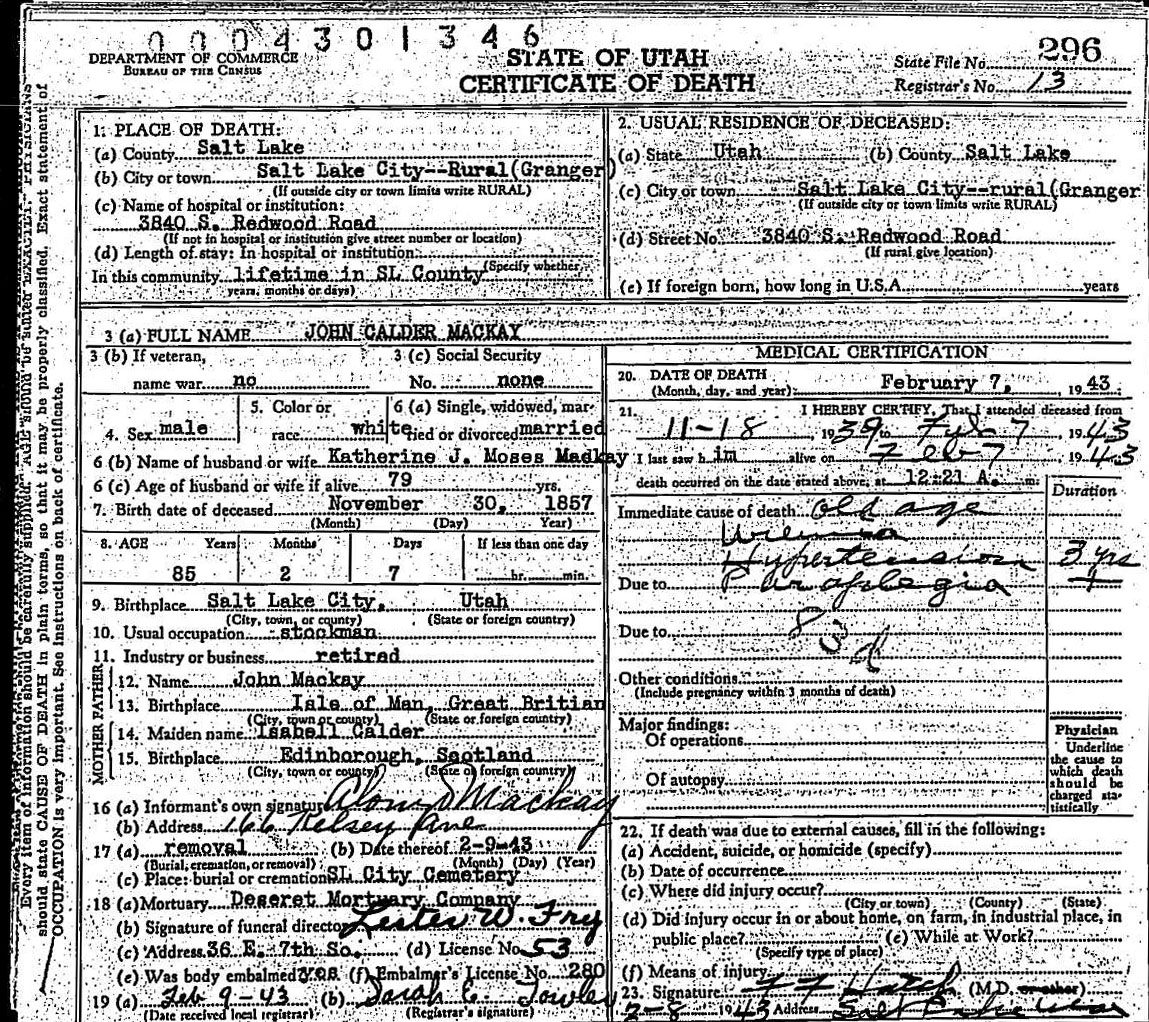 0004301346
DEPARTMENT OF COMMERCE
BUREAU OF THE CENSUS
STATE OF UTAH
CERTIFICATE OF DEATH
State File No. 296
Registrar's No. 13
Every item of information should be carefully supplied. AGE should be stated EXACTLY.
should state CAUSE OF DEATH in plain terms, so that it may be properly classified. Exact statement of
OCCUPATION is very important. See instructions on back of certificate.
1. PLACE OF DEATH:
(a) County Salt Lake
(b) City or town Salt Lake City--Rural(Granger)
(If outside city or town limits write RURAL)
(c) Name of hospital or institution:
3840 S. Redwood Road
(If not in hospital or institution give street number or location)
(d) Length of stay: In hospital or institution
(Specify whether
In this community lifetime in SL County
years, months or days)
2. USUAL RESIDENCE OF DECEASED:
(a) State Utah (b) County Salt Lake
(c) City or town Salt Lake City--rural(Granger
(If outside city or town limits write RURAL)
(d) Street No. 3840 S. Redwood Road
(If rural give location)
(e) If foreign born, how long in U.S.A. years
3 (a) FULL NAME JOHN CALDER MACKAY
3 (b) If veteran, 3 (c) Social Security
name war no No. none
4. Sex male 5. Color or race white 6 (a) Single, widowed, married or divorced married
6 (b) Name of husband or wife Katherine J. Moses Mackay
6 (c) Age of husband or wife if alive 79 yrs.
7. Birth date of deceased November 30, 1857
(Month) (Day) Year)
8. AGE Years Months Days If less than one day
85 2 7 hr. min.
9. Birthplace Salt Lake City, Utah
(City, town, or county) (State or foreign country)
10. Usual occupation stockman
11. Industry or business retired
FATHER
12. Name John Mackay
13. Birthplace Isle of Man, Great Britian
(City, town or county) (State or foreign country)
MOTHER
14. Maiden name Isabell Calder
15. Birthplace Edinborough, Scotland
(City, town or county) (State or foreign country)
16 (a) Informant's own signature Mackay
(b) Address 166 Kelsey Ave
17 (a) removal (b) Date thereof 2-9-43
(Burial, cremation, or removal) (Month) (Day) (Year)
(c) Place: burial or cremation SL City Cemetery
18 (a) Mortuary Deseret Mortuary Company
(b) Signature of funeral director Lester W. Fry
(c) Address 36 E. 7th So. (d) License No. 53
(e) Was body embalmed yes (f) Embalmer's License No. 280
19 (a) Feb 9-43 (b) Sarah E. Towley
(Date received local registrar) (Registrar's signature)
MEDICAL CERTIFICATION
20. DATE OF DEATH
(Month, day, and year): February 7, 1943
21. I HEREBY CERTIFY, That I attended deceased from
11-18, 1939 to Feb 7 1943
I last saw him alive on Feb 7 1943
death occurred on the date stated above, at 12:21 A. m.
Duration
Immediate cause of death old age
Uremia
Hypertension 3 yrs
Due to Paraplegia +
Due to
83d
Other conditions
(Include pregnancy within 3 months of death)
Major findings:
Of operations
Of autopsy
Physician
Underline
the cause to
which death
should be
charged sta-
tistically
22. If death was due to external causes, fill in the following:
(a) Accident, suicide, or homicide (specify)
(b) Date of occurrence
(c) Where did injury occur?
(City or town) (County) (State)
(d) Did injury occur in or about home, on farm, in industrial place, in
public place? (e) While at Work?
(Specify type of place)
(f) Means of injury
23. Signature F F Hatch (M.D. or other)
2-8 1943 Address Salt Lake